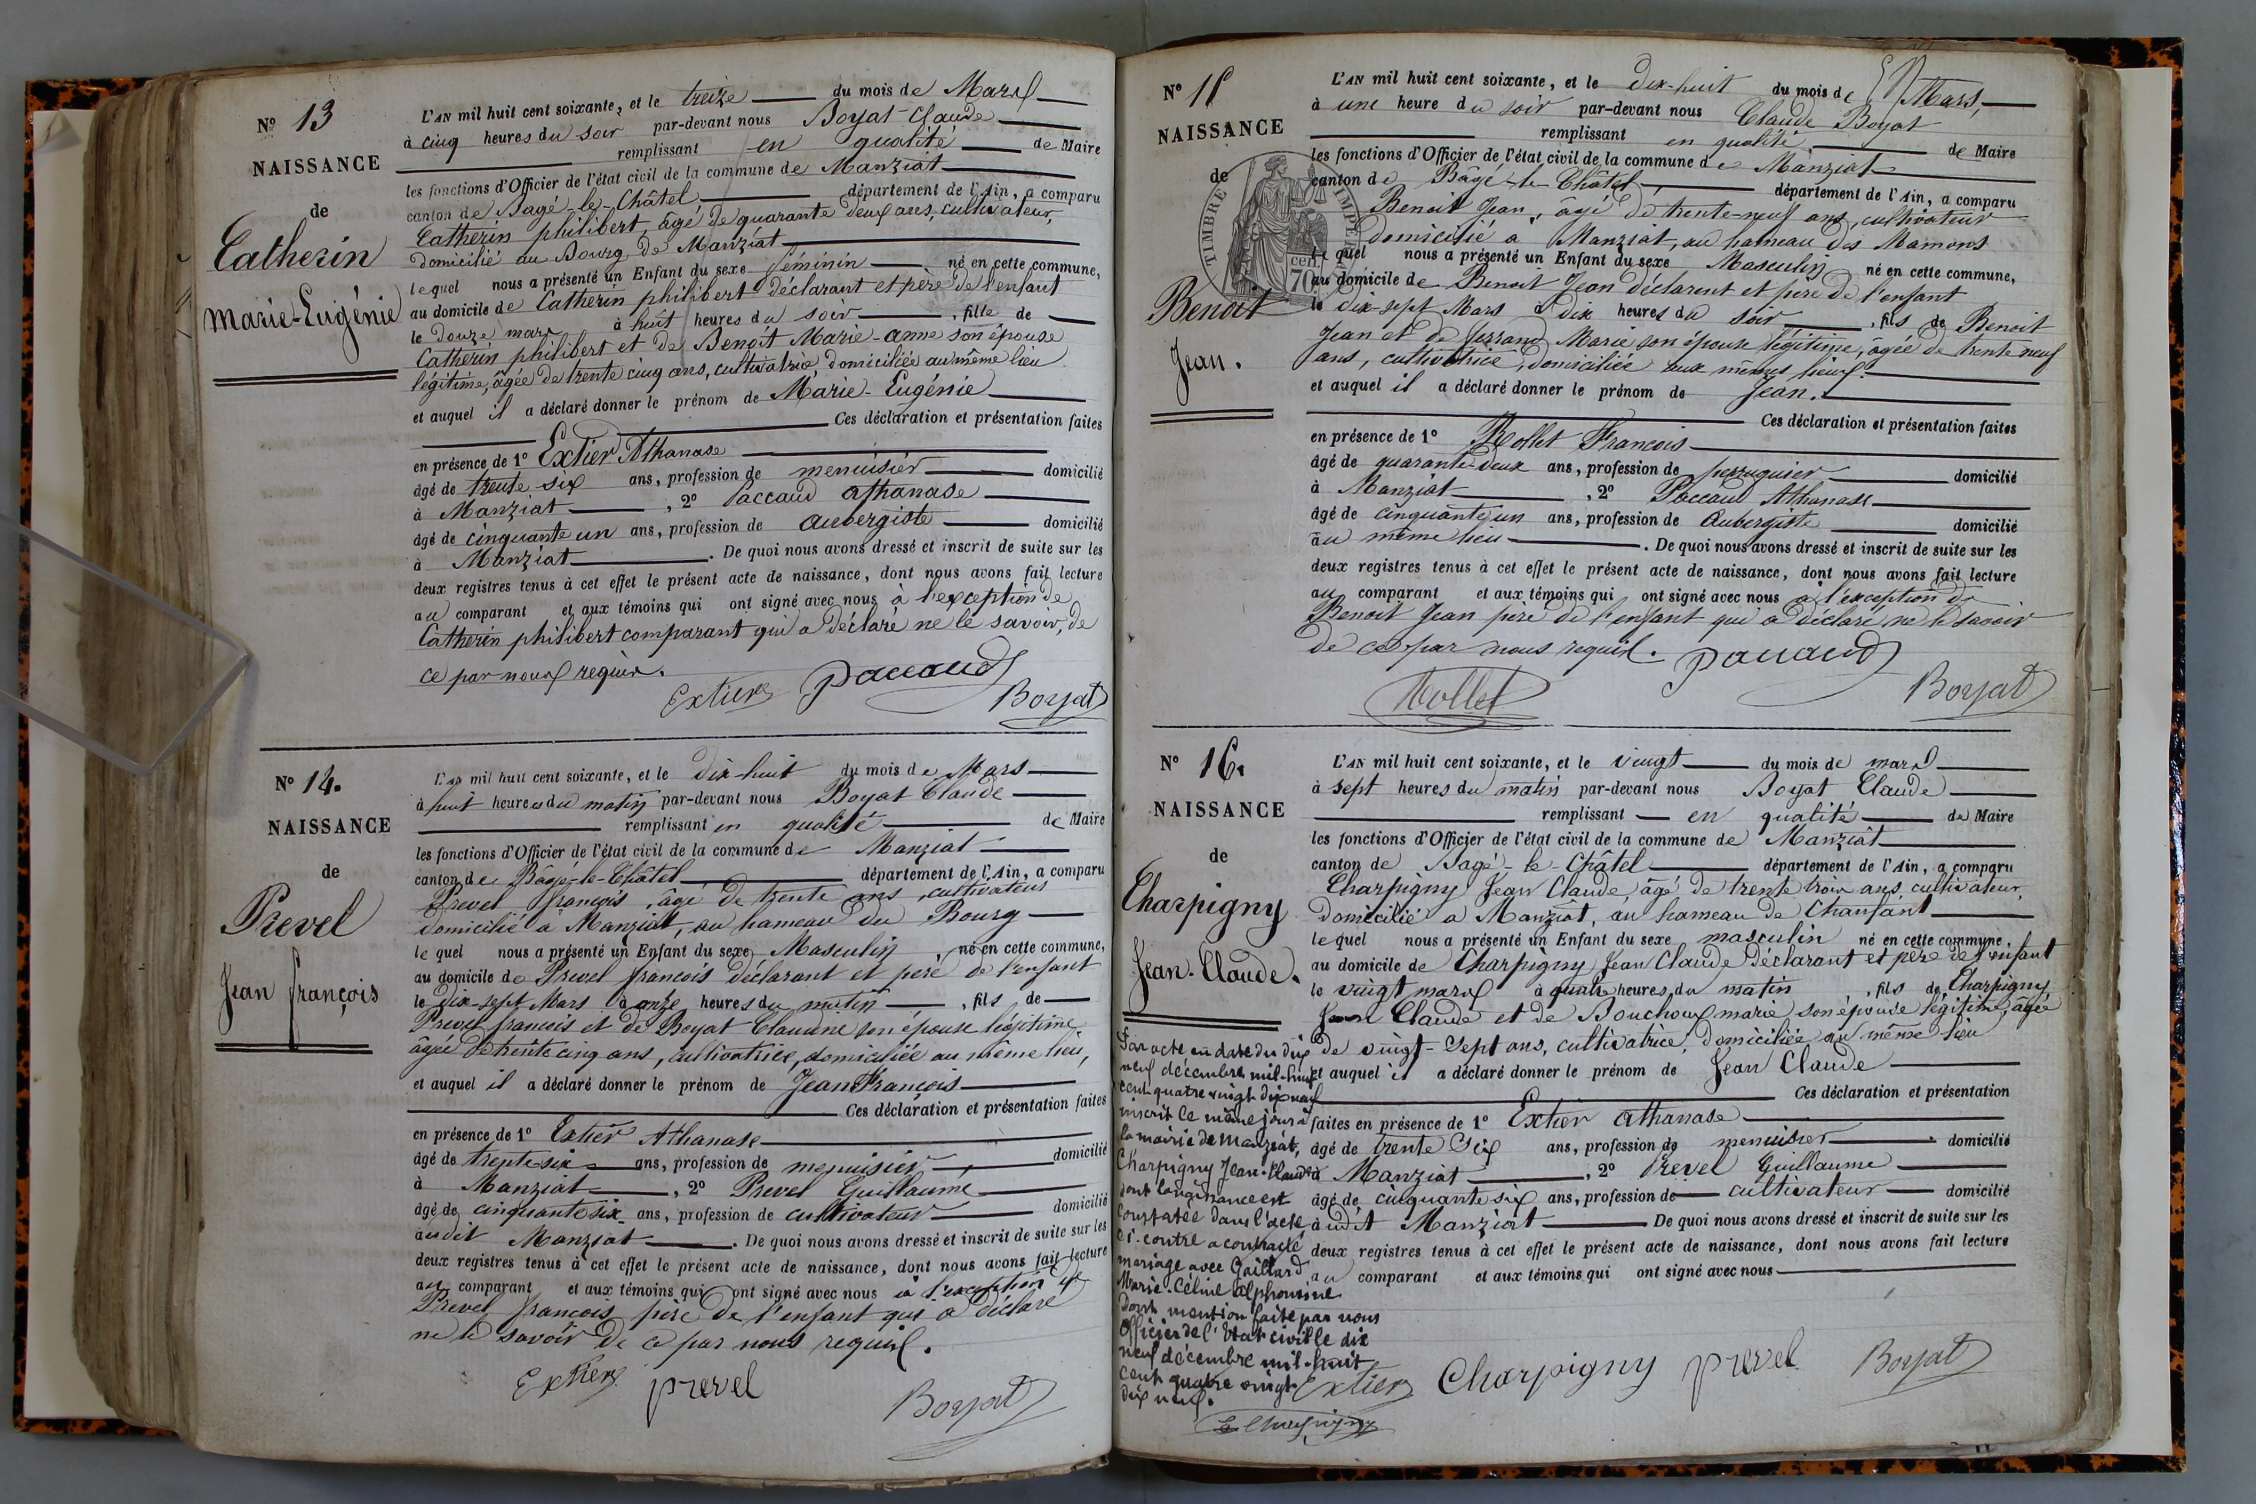 Nº 13
NAISSANCE
de
Catherin
Marie-Eugénie
L'AN mil huit cent soixante, et le treize du mois de Mars
à cinq heures du soir par-devant nous Boyat Claude
remplissant en qualité de Maire
les fonctions d'Officier de l'état civil de la commune de Manziat
canton de Bagé-le-Châtel département de l'Ain, a comparu
Catherin philibert, âgé de quarante deux ans, cultivateur,
domicilié au Bourg de Manziat
lequel nous a présenté un Enfant du sexe féminin né en cette commune,
au domicile de Catherin philibert déclarant et père de l'enfant
le douze mars à huit heures du soir, fille de
Catherin philibert et de Benoît Marie-anne son épouse
légitime, âgée de trente cinq ans, cultivatrice domiciliée au même lieu
et auquel il a déclaré donner le prénom de Marie-Eugénie
Ces déclaration et présentation faites
en présence de 1º Extier Athanase
âgé de trente-six ans, profession de menuisier domicilié
à Manziat, 2º Paccaud athanase
âgé de cinquante un ans, profession de aubergiste domicilié
à Manziat. De quoi nous avons dressé et inscrit de suite sur les
deux registres tenus à cet effet le présent acte de naissance, dont nous avons fait lecture
au comparant et aux témoins qui ont signé avec nous à l'exception de
Catherin philibert comparant qui a déclaré ne le savoir, de
ce par nous requis.
Extier Paccaud
Boyat
Nº 14.
NAISSANCE
de
Prevel
Jean françois
L'AN mil huit cent soixante, et le dix-huit du mois de Mars
à huit heures du matin par-devant nous Boyat Claude
remplissant en qualité de Maire
les fonctions d'Officier de l'état civil de la commune de Manziat
canton de Bâgé-le-Châtel département de l'Ain, a comparu
Prevel françois, âgé de trente ans, cultivateur
domicilié à Manziat, au hameau du Bourg
le quel nous a présenté un Enfant du sexe Masculin, né en cette commune,
au domicile de Prevel françois déclarant et père de l'enfant
le dix-sept Mars à onze heures du matin, fils de
Prevel françois et de Boyat Claudine son épouse légitime,
âgée de trente cinq ans, cultivatrice, domiciliée au même lieu,
et auquel il a déclaré donner le prénom de Jean François
Ces déclaration et présentation faites
en présence de 1º Extier Athanase
âgé de trente six ans, profession de menuisier, domicilié
à Manziat, 2º Prevel Guillaume
âgé de cinquante six ans, profession de cultivateur domicilié
audit Manziat. De quoi nous avons dressé et inscrit de suite sur les
deux registres tenus à cet effet le présent acte de naissance, dont nous avons fait lecture
au comparant et aux témoins qui ont signé avec nous à l'exception de
Prevel françois père de l'enfant qui a déclaré
ne le savoir de ce par nous requis.
Extier prevel
Boyat
Nº 15
NAISSANCE
de
TIMBRE IMPÉRIAL
70 cen.
Benoit
Jean.
L'AN mil huit cent soixante, et le dix-huit du mois de Mars,
à une heure du soir par-devant nous Claude Boyat
remplissant en qualité de Maire
les fonctions d'Officier de l'état civil de la commune de Manziat
canton de Bâgé-le-Châtel, département de l'Ain, a comparu
Benoit Jean, âgé de trente-neuf ans, cultivateur
domicilié à Manziat, au hameau des Mamons
le quel nous a présenté un Enfant du sexe Masculin né en cette commune,
au domicile de Benoit Jean déclarent et père de l'enfant
le dix sept Mars à dix heures du soir, fils de Benoit
Jean et de ferrand Marie son épouse légitime, âgée de trente neuf
ans, cultivatrice, domiciliée aux mêmes lieux.
et auquel il a déclaré donner le prénom de Jean.
Ces déclaration et présentation faites
en présence de 1º Rollet François
âgé de quarante-deux ans, profession de perruquier domicilié
à Manziat, 2º Paccaud Athanase
âgé de cinquante un ans, profession de aubergiste domicilié
au même lieu. De quoi nous avons dressé et inscrit de suite sur les
deux registres tenus à cet effet le présent acte de naissance, dont nous avons fait lecture
au comparant et aux témoins qui ont signé avec nous à l'exception de
Benoit Jean père de l'enfant qui a déclaré ne le savoir
de ce par nous requis. Paccaud
Rollet Boyat
Nº 16.
NAISSANCE
de
Charpigny
Jean-Claude.
L'AN mil huit cent soixante, et le vingt du mois de mars
à sept heures du matin par-devant nous Boyat Claude
remplissant en qualité de Maire
les fonctions d'Officier de l'état civil de la commune de Manziat
canton de Bagé-le-Châtel département de l'Ain, a comparu
Charpigny Jean Claude, âgé de trente trois ans cultivateur,
domicilié a Manziat, au hameau de Chanfant
lequel nous a présenté un Enfant du sexe masculin né en cette commune,
au domicile de Charpigny Jean Claude déclarant et père de l'enfant
le vingt mars à quatre heures du matin, fils de Charpigny
Jean Claude et de Bouchoux marie son épouse légitime, âgée
de vingt-sept ans, cultivatrice, domiciliée au même lieu
et auquel il a déclaré donner le prénom de Jean Claude
Ces déclaration et présentation
faites en présence de 1º Extier athanase
âgé de trente six ans, profession de menuisier domicilié
à Manziat, 2º Prevel Guillaume
âgé de cinquante six ans, profession de cultivateur domicilié
audit Manziat De quoi nous avons dressé et inscrit de suite sur les
deux registres tenus à cet effet le présent acte de naissance, dont nous avons fait lecture
au comparant et aux témoins qui ont signé avec nous
Extier Charpigny prevel Boyat
Par acte en date du dix
neuf décembre mil-huit
cent quatre vingt dix neuf
inscrit le même jour à
la mairie de Manziat,
Charpigny Jean-Claude
dont la naissance est
constatée dans l'acte
ci-contre a contracté
mariage avec Gaillard
Marie-Céline alphonsine
dont mention faite par nous
Officier de l'Etat civil le dix
neuf décembre mil-huit
cent quatre vingt
dix neuf.